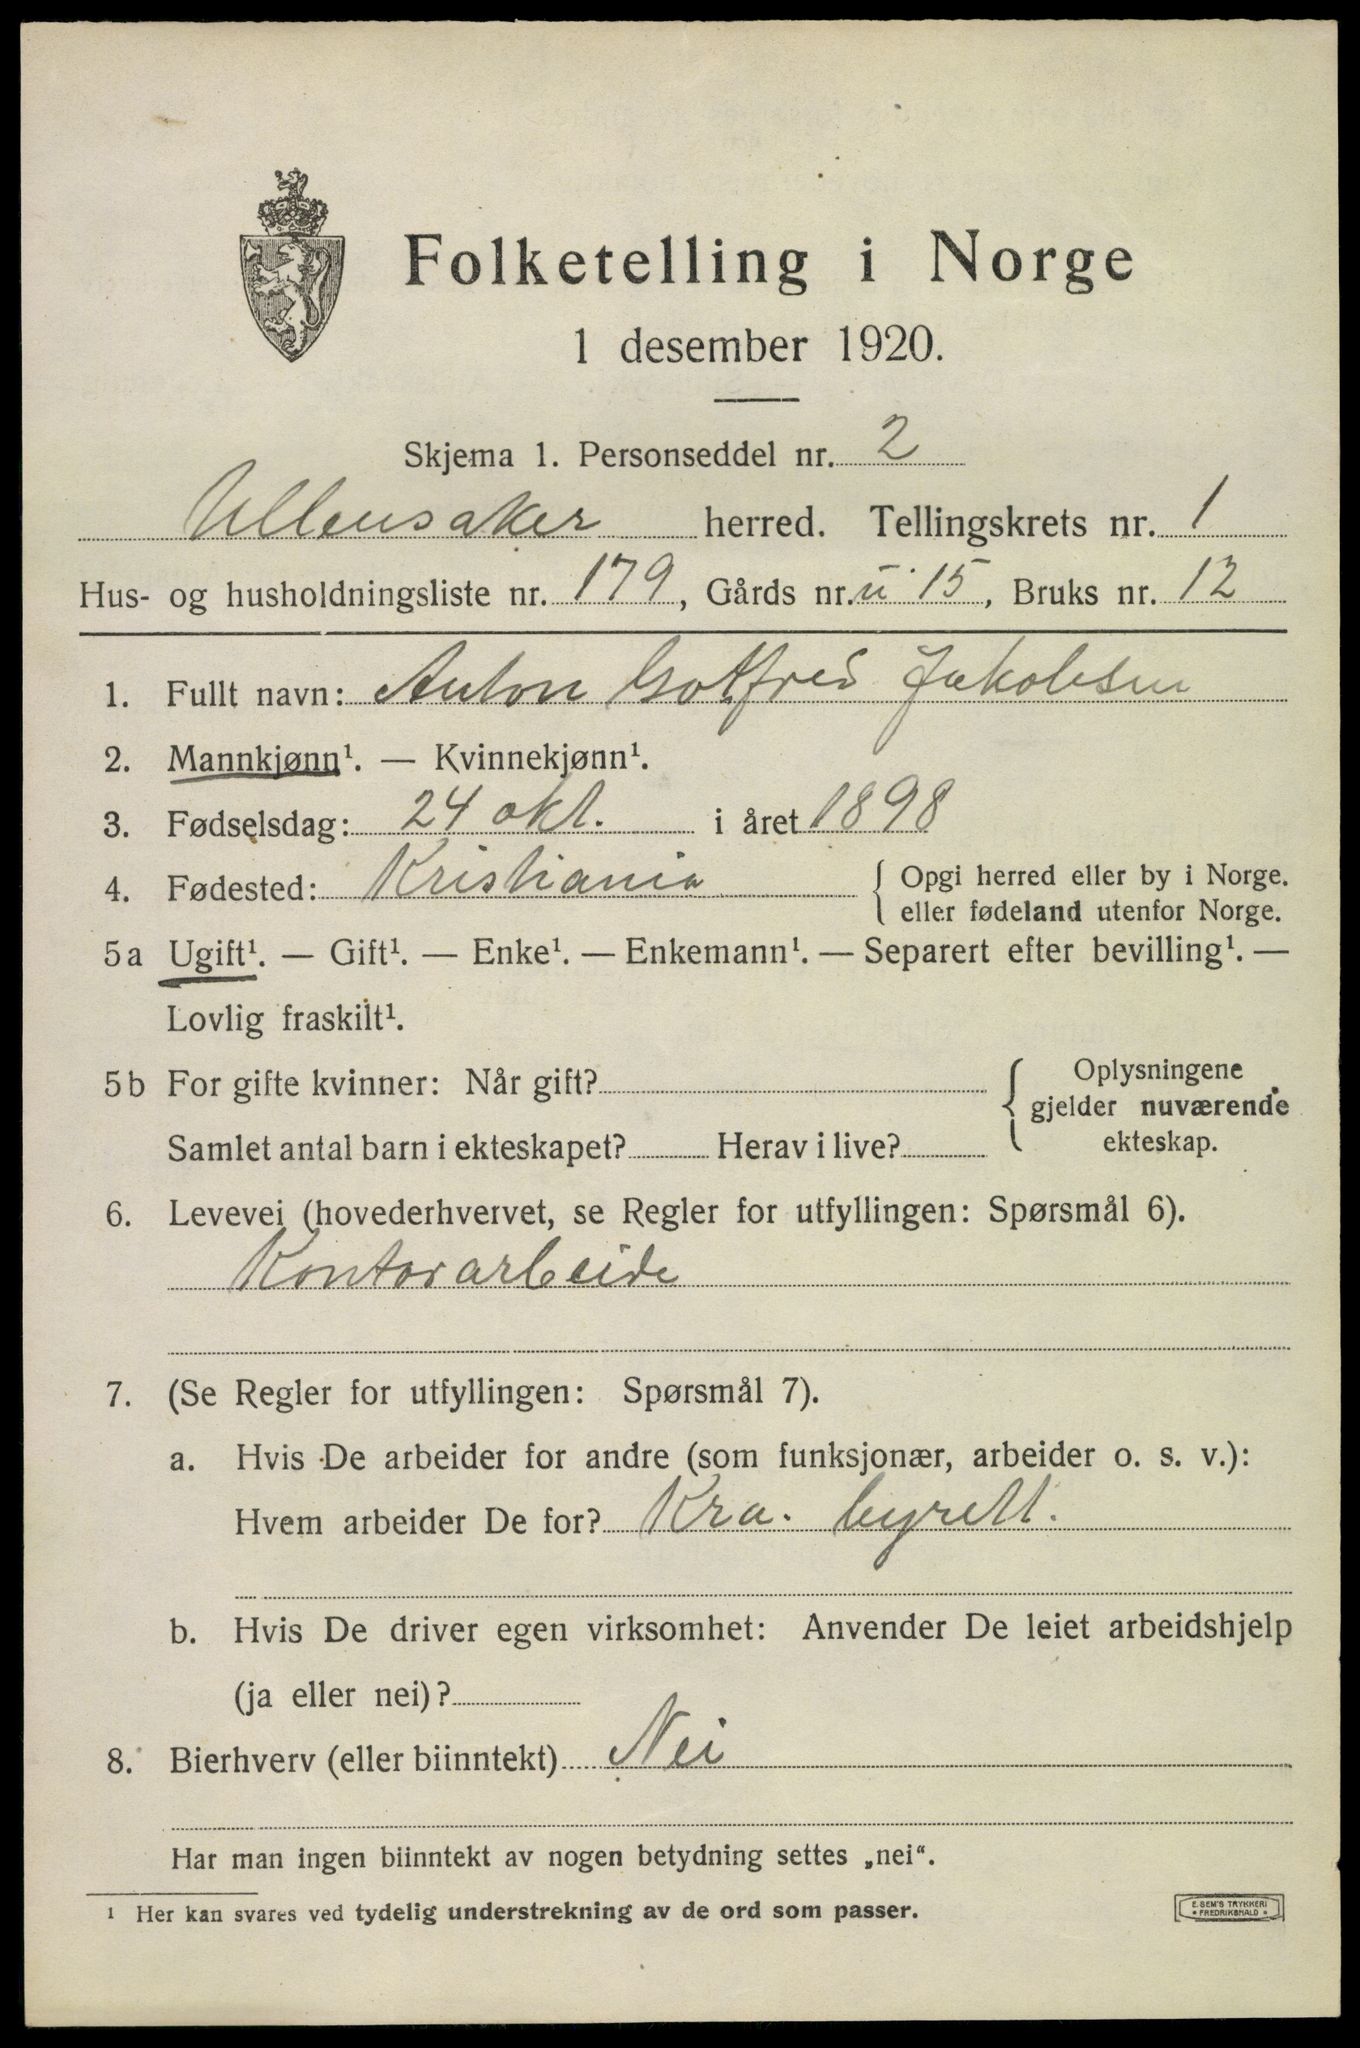 Folketelling i Norge
1 desember 1920.
Skjema 1. Personseddel nr. 2
Ullensaker herred. Tellingskrets nr. 1
Hus- og husholdningsliste nr. 179, Gårds nr. u 15, Bruks nr. 12
1. Fullt navn: Anton Gotfred Jakobsen
2. Mannkjønn¹. — Kvinnekjønn¹.
3. Fødselsdag: 24 okt. i året 1898
4. Fødested: Kristiania { Opgi herred eller by i Norge.
eller fødeland utenfor Norge.
5a Ugift¹. — Gift¹. — Enke¹. — Enkemann¹. — Separert efter bevilling¹. —
Lovlig fraskilt¹.
5b For gifte kvinner: Når gift? { Oplysningene
gjelder nuværende
Samlet antal barn i ekteskapet? Herav i live? ekteskap.
6. Levevei (hovederhvervet, se Regler for utfyllingen: Spørsmål 6).
Kontorarbeide
7. (Se Regler for utfyllingen: Spørsmål 7).
a. Hvis De arbeider for andre (som funksjonær, arbeider o. s. v.):
Hvem arbeider De for? Kra. byrett.
b. Hvis De driver egen virksomhet: Anvender De leiet arbeidshjelp
(ja eller nei)?
8. Bierhverv (eller biinntekt) Nei
Har man ingen biinntekt av nogen betydning settes „nei“.
¹ Her kan svares ved tydelig understrekning av de ord som passer.
E. SEM'S TRYKKERI
* FREDRIKSHALD *